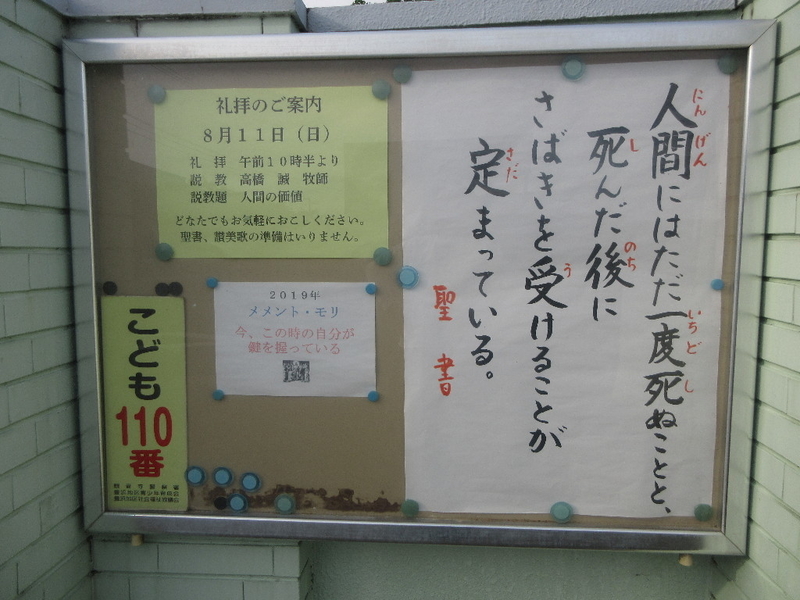 礼拝のご案内
8月11日（日）
礼　拝　午前10時半より
説　教　高橋　誠　牧師
説教題　人間の価値
どなたでもお気軽におこしください。
聖書、讃美歌の準備はいりません。
2019年
メメント・モリ
今、この時の自分が
鍵を握っている
こども
110
番
人間にはただ一度死ぬことと、
にんげん いちどし
死んだ後に
し のち
さばきを受けることが
う
定まっている。
さだ
聖書